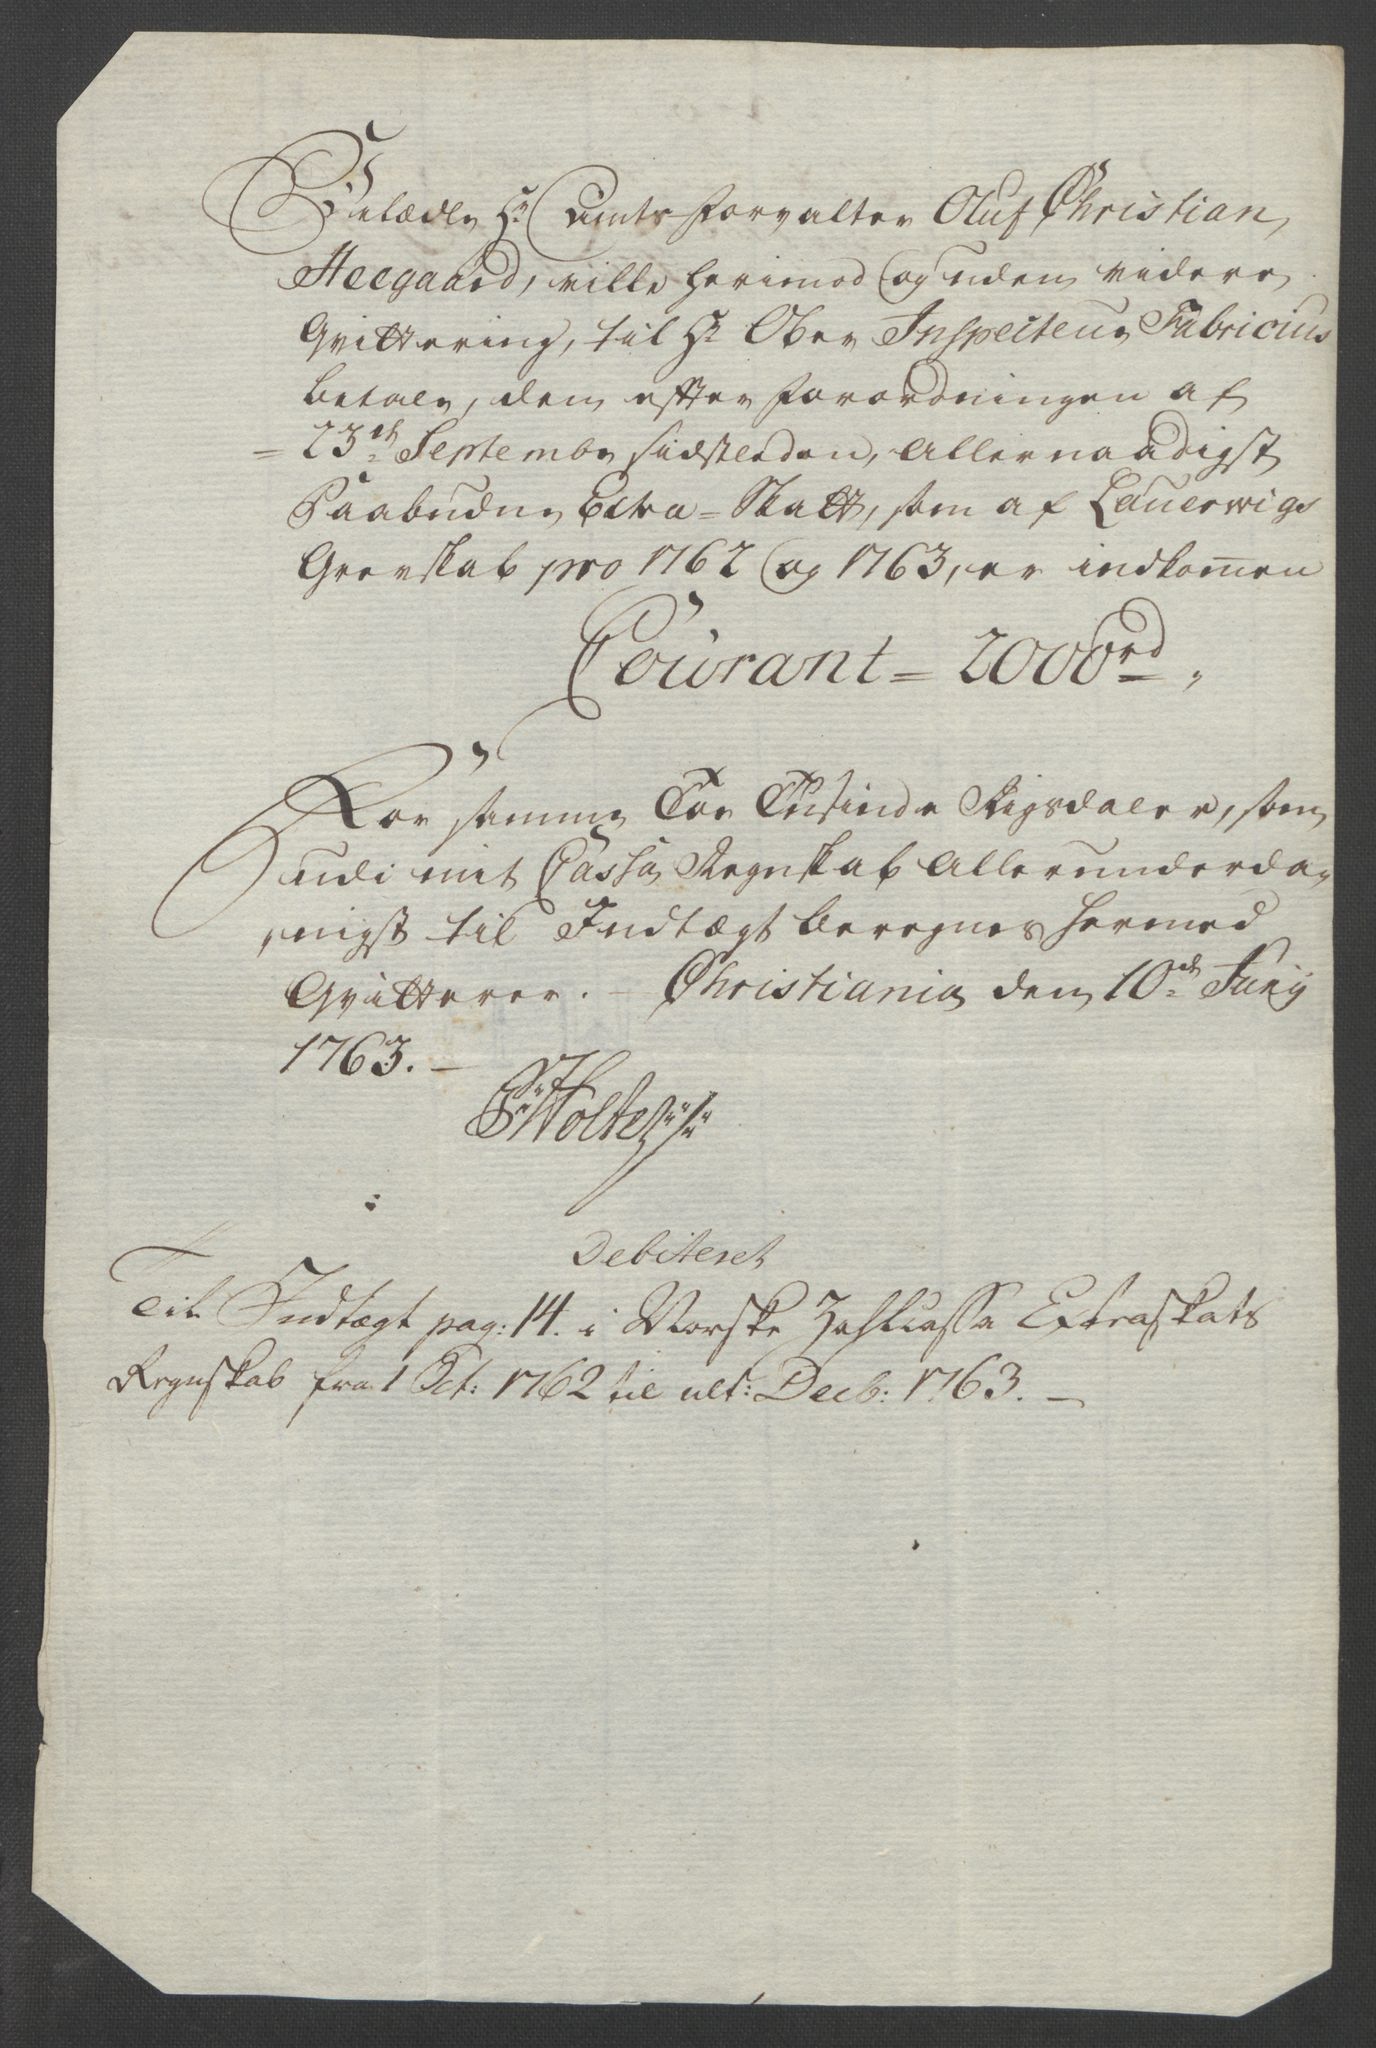 Velædle Hr Amts Forvalter Oluf Christian
Heegaard, ville herimod og uden videre
Qvittering, til Hr Ober Inspecteur Fabricius
betale, den efter Forordningen af
= 23de September sidstleden, Allernaadigst
Paabudne Extra = Skatt, som af Lauerwigs
Grevskab pro 1762 og 1763, er indkom̄en
Courant = 2000rd,
For samme Toe Tusinde Rigsdaler, som
udi mit Cassa Regnskab Allerunderda-
nigst til Indtægt beregnes hermed
Qvitterer. – Christiania den 10de Junij
1763. –
Holte
Debiteret
Til Indtægt pag: 14. i Norske Zahlcassa Extraskats
Regnskab fra 1 Oct: 1762 til ult: Decb: 1763. –